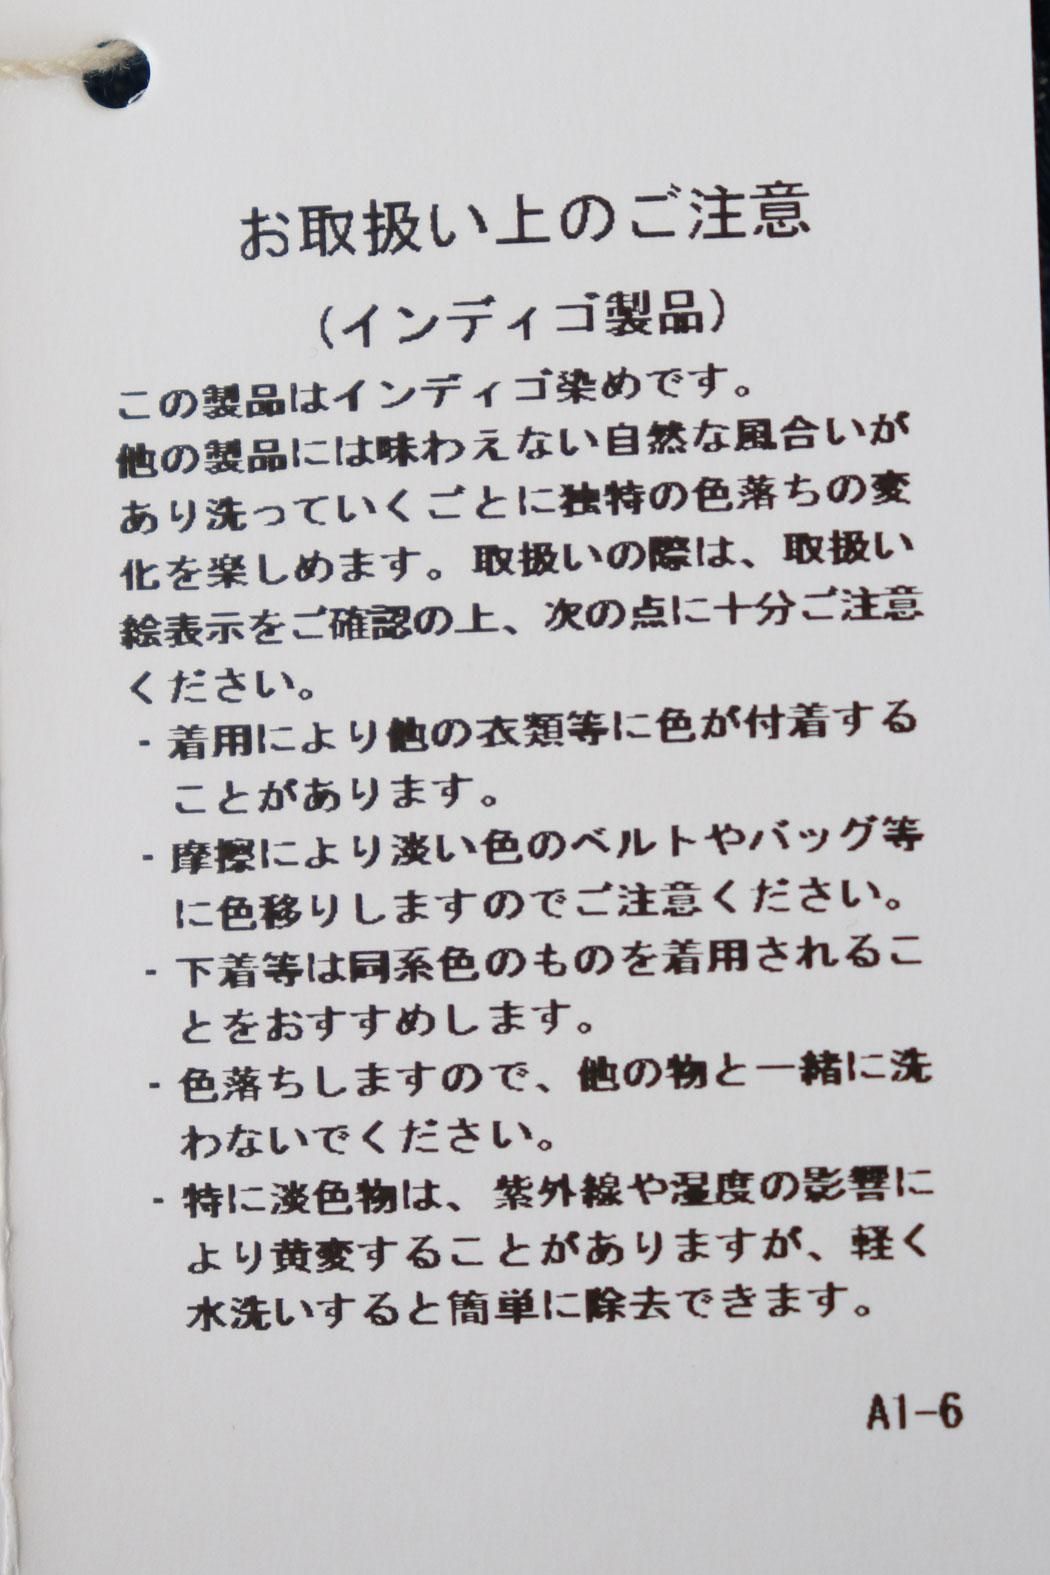 お取扱い上のご注意
(インディゴ製品)
この製品はインディゴ染めです。
他の製品には味わえない自然な風合いが
あり洗っていくごとに独特の色落ちの変
化を楽しめます。取扱いの際は、取扱い
絵表示をご確認の上、次の点に十分ご注意
ください。
- 着用により他の衣類等に色が付着する
ことがあります。
- 摩擦により淡い色のベルトやバッグ等
に色移りしますのでご注意ください。
- 下着等は同系色のものを着用されるこ
とをおすすめします。
- 色落ちしますので、他の物と一緒に洗
わないでください。
- 特に淡色物は、紫外線や湿度の影響に
より黄変することがありますが、軽く
水洗いすると簡単に除去できます。
A1-6